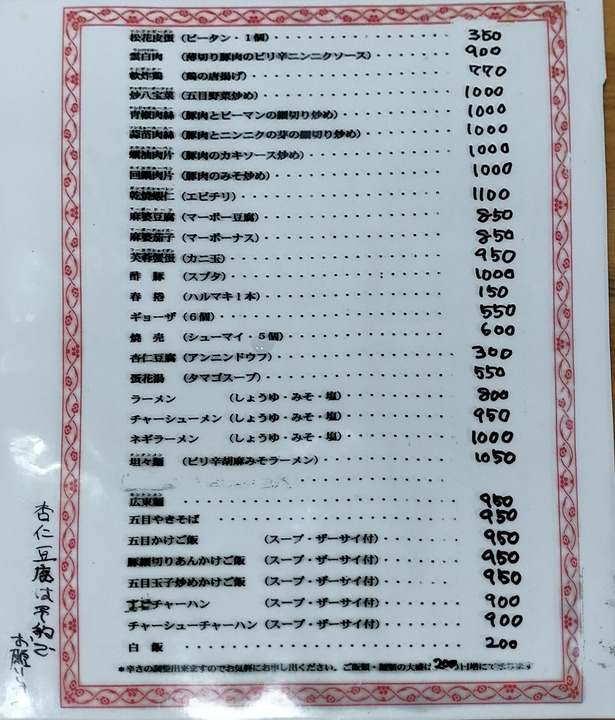 松花皮蛋（ピータン・１個） 350
雲白肉（薄切り豚肉のピリ辛ニンニクソース） 900
軟炸鶏（鶏の唐揚げ） 770
炒八宝菜（五目野菜炒め） 1000
青椒肉絲（豚肉とピーマンの細切り炒め） 1000
蒜苗肉絲（豚肉とニンニクの芽の細切り炒め） 1000
蠣油肉片（豚肉のカキソース炒め） 1000
回鍋肉片（豚肉のみそ炒め） 1000
乾焼蝦仁（エビチリ） 1100
麻婆豆腐（マーボー豆腐） 850
麻婆茄子（マーボーナス） 850
芙蓉蟹蛋（カニ玉） 950
酢豚（スブタ） 1000
春捲（ハルマキ１本） 150
ギョーザ（６個） 550
焼売（シューマイ・５個） 600
杏仁豆腐（アンニンドウフ） 300
蛋花湯（タマゴスープ） 550
ラーメン（しょうゆ・みそ・塩） 800
チャーシューメン（しょうゆ・みそ・塩） 950
ネギラーメン（しょうゆ・みそ・塩） 1000
坦々麺（ピリ辛胡麻みそラーメン） 1050
広東麺 950
五目やきそば 950
五目かけご飯（スープ・ザーサイ付） 950
豚細切りあんかけご飯（スープ・ザーサイ付） 950
五目玉子炒めかけご飯（スープ・ザーサイ付） 950
チャーハン（スープ・ザーサイ付） 900
チャーシューチャーハン（スープ・ザーサイ付） 900
白飯 200
＊辛さの調整出来ますのでお気軽にお申し出ください。ご飯類・麺類の大盛は200円増にて
杏仁豆腐は予約で
お願い